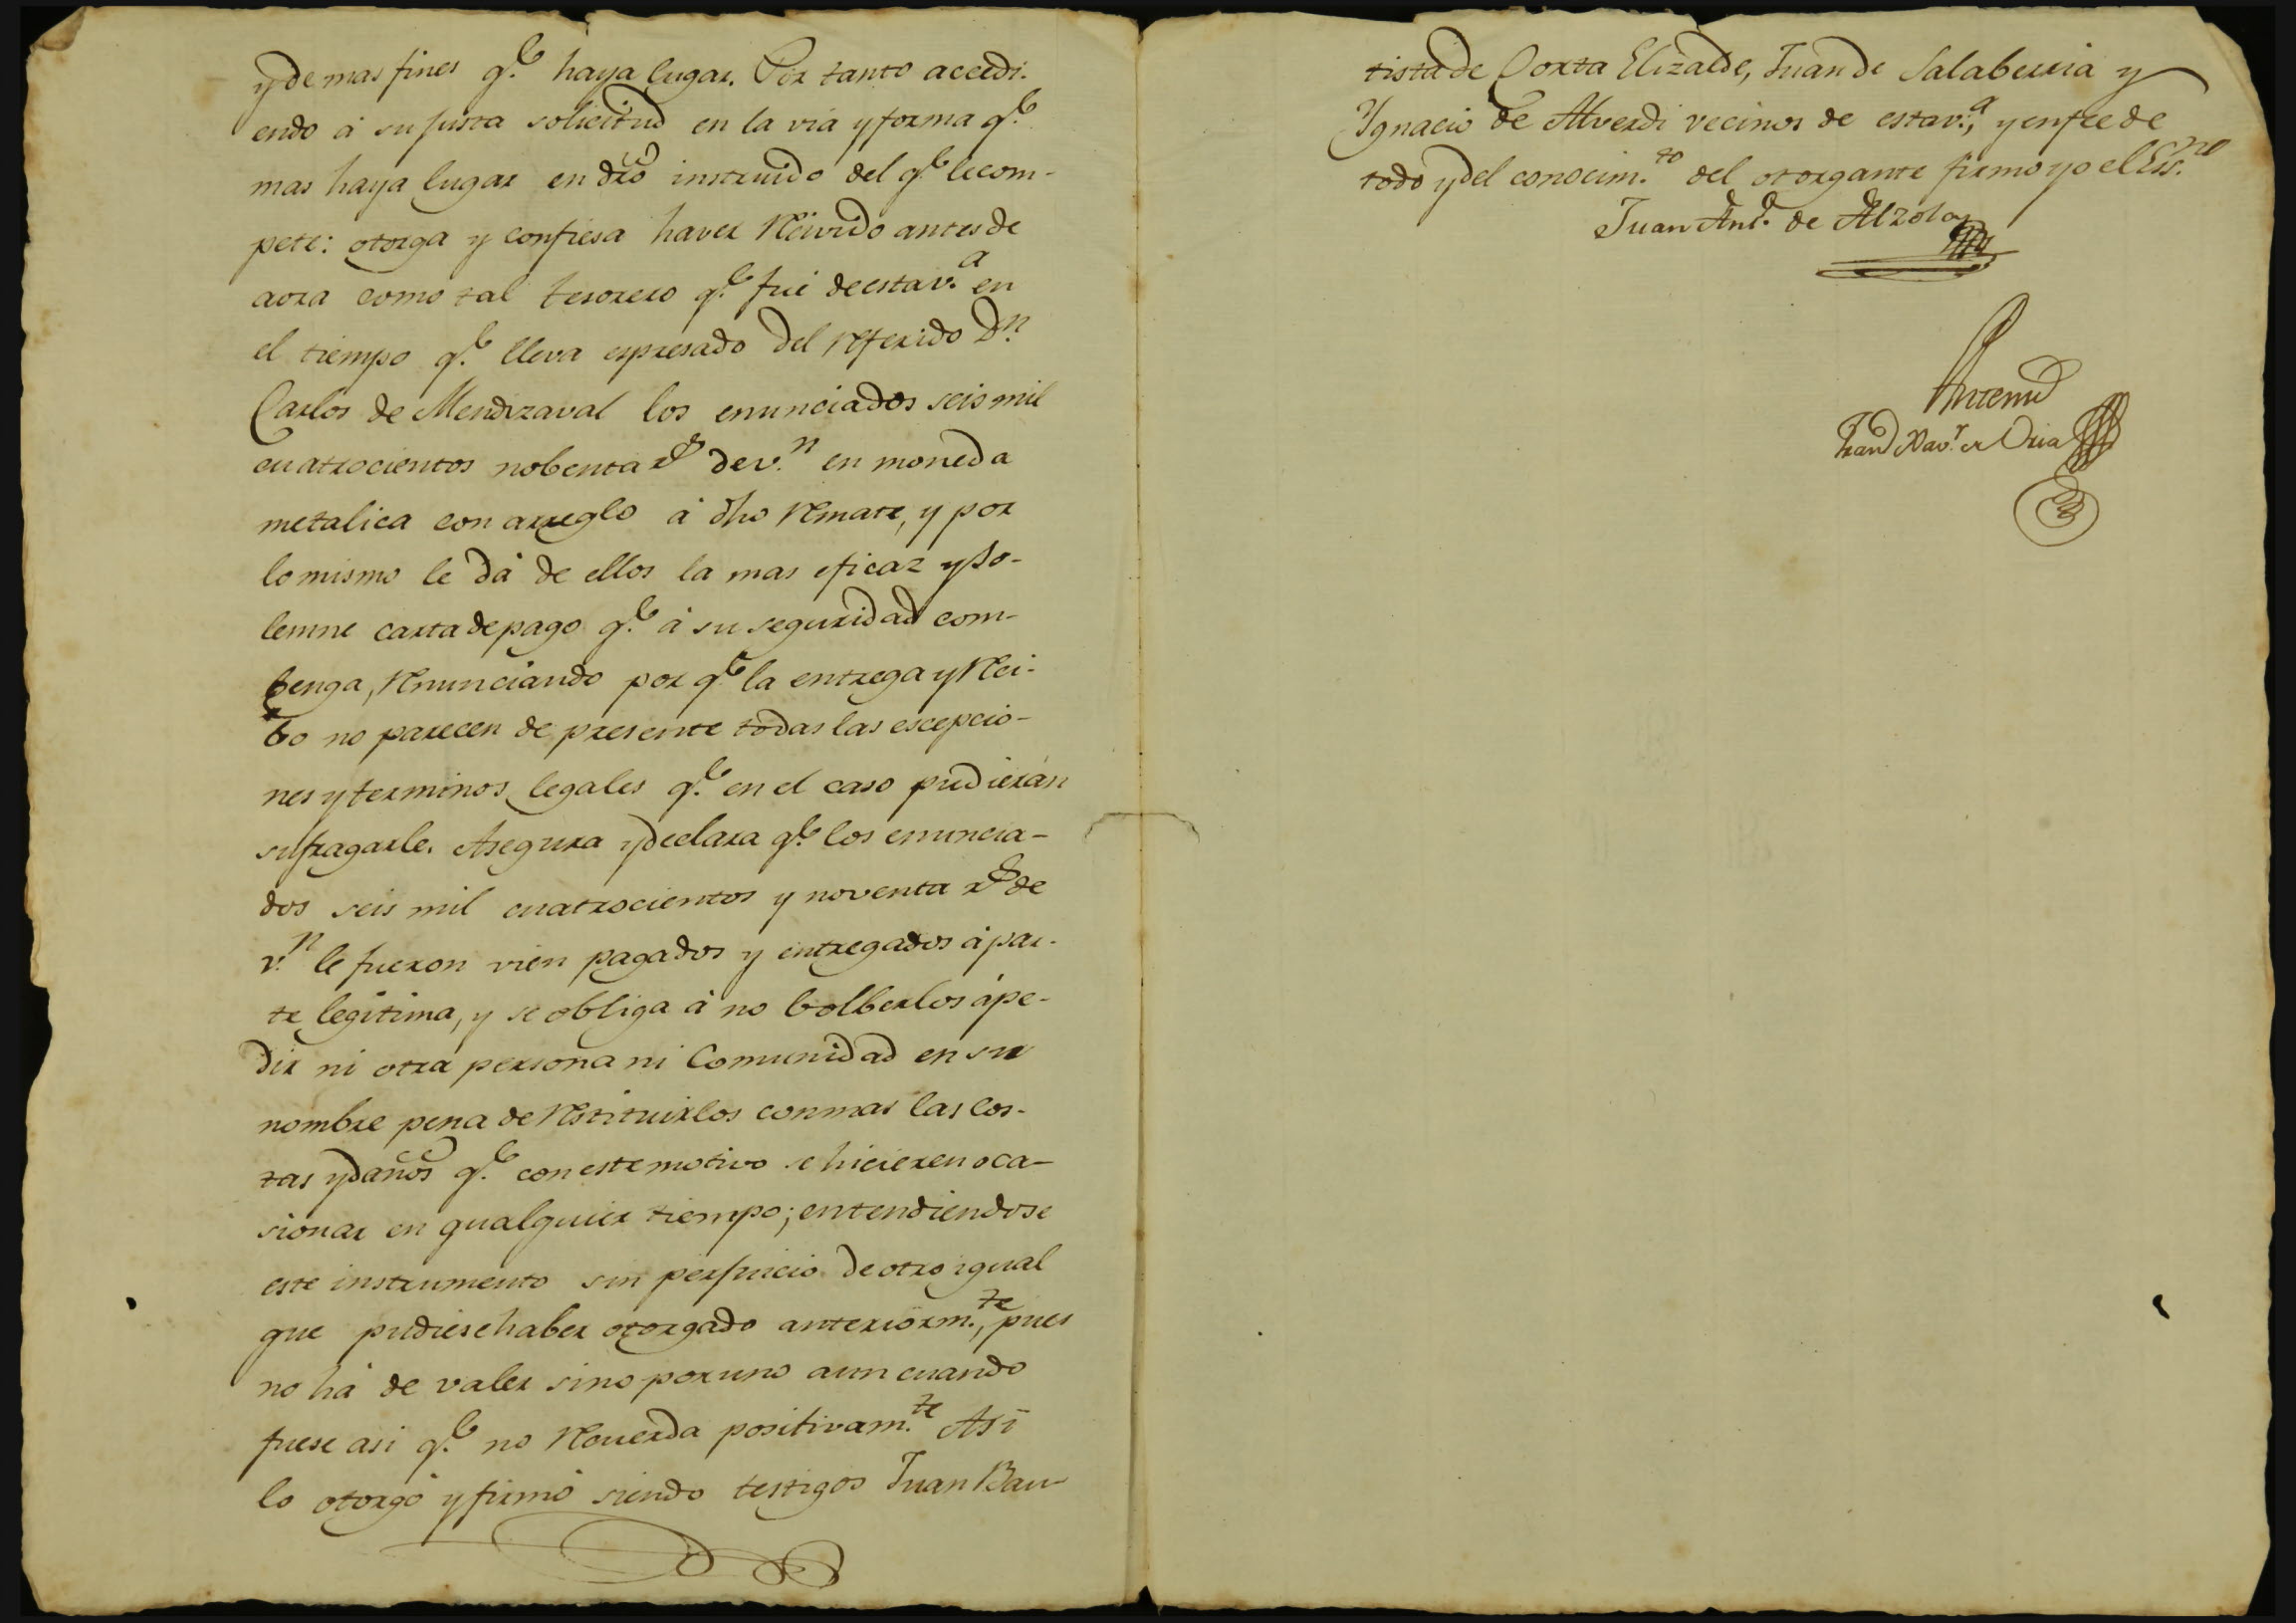 y demas fines q.e haya lugar. Por tanto accedi-
endo á su justa solicitud en la via y forma q.e
mas haya lugar en dro instruido del q.e le com-
pete: otorga y confiesa haver Reivido antes de
aora como tal tesorero q.e fué de esta v.a en
el tiempo q.e lleva espresado del Referido D.n
Carlos de Mendizaval los enunciados seis mil
cuatrocientos nobenta r.s de v.n en moneda
metalica con arreglo á dho Remate, y por
lo mismo le dá de ellos la mas eficaz y so-
lemne carta de pago q.e á su seguridad com-
benga, Renunciando por q.e la entrega y Rei-
bo no parecen de presente todas las escepcio-
nes y terminos legales q.e en el caso pudieran
sufragarle. Asegura y declara q.e los enuncia-
dos seis mil cuatrocientos y noventa r.s de
v.n le fueron vien pagados y entregados á par-
te legitima, y se obliga á no bolberlos á pe-
dir ni otra persona ni Comunidad en su
nombre pena de Restituirlos con mas las cos-
tas y daños q.e con este motivo se hicieren oca-
sionar en qualquier tiempo; entendiendose
este instrumento sin perjuicio de otro igual
que pudiese haber otorgado anteriorm.te, pues
no há de valer sino por uno aun cuando
fuese asi q.e no Recuerda positivam.te Asi
lo otorgó y firmó siendo testigos Juan Bau-
tista de Corta Elizalde, Juan de Salaberria y
Ygnacio de Alverdi vecinos de esta v.a, y en fee de
todo y del conocim.to del otorgante firmo yo el Ess.no
Juan Ant.o de Alzola
Antemi
Fran.co Xav.r de Oria